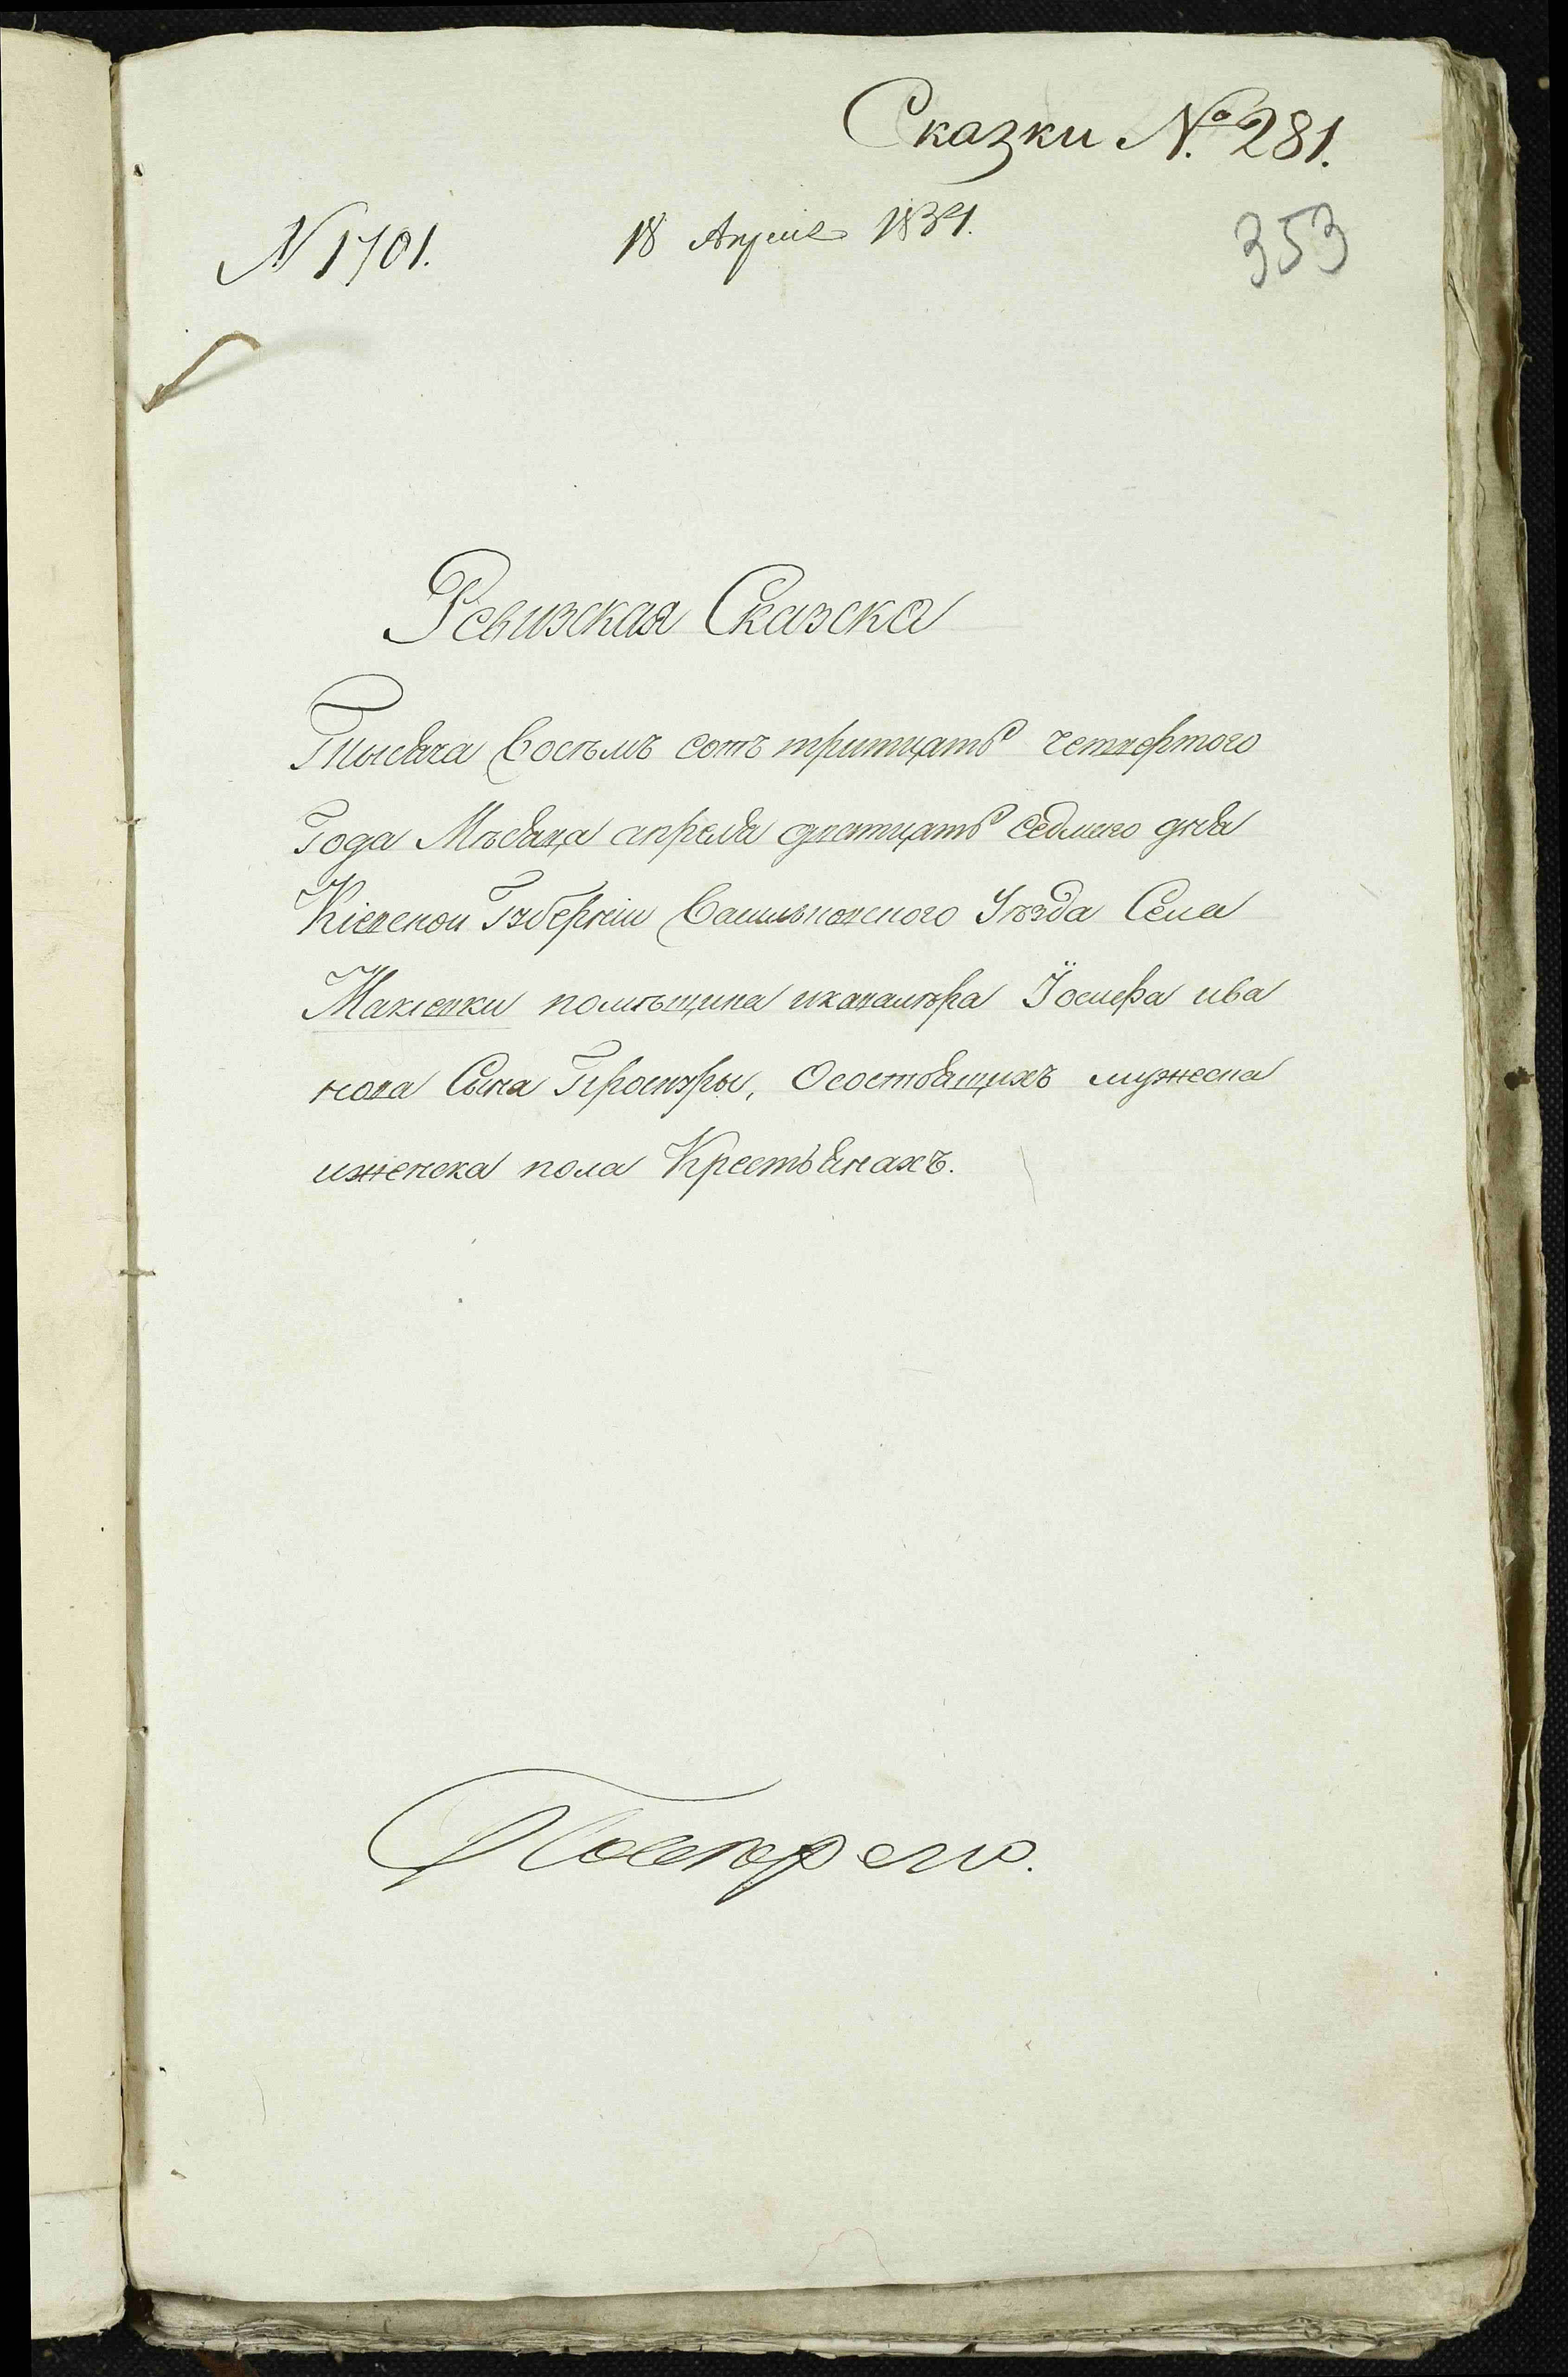 Сказки №. 281.
N 1701. 18 Апреля 1834. 353
Ревизская Сказска
Тысяча Восѣмъ сотъ тритцать четвертого
Года Мѣсяца апреля дватцать седмого дня
Кіевскои Губерніи Васильковского Уѣзда Села
Макіевки помѣщика икавалѣра Іосифа ива
нова Сына Проскуры, Осостоящихъ мужеска
иженска пола Крестьянахъ.